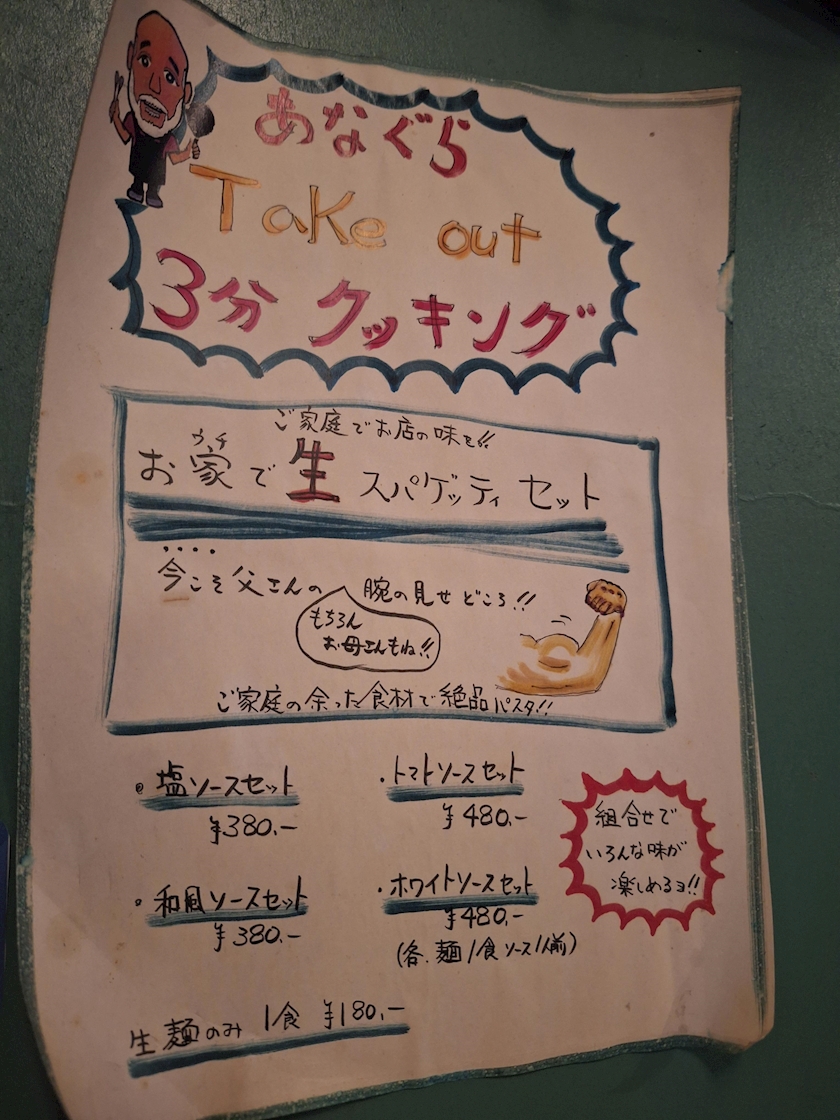 あなぐら
Take out
3分 クッキング
ご家庭でお店の味を!!
ウチ
お家で生スパゲッティ セット
今こそ父さんの 腕の見せどころ!!
もちろん
お母さんもね!!
ご家庭の余った食材で絶品パスタ!!
・塩ソースセット
¥380.-
・トマトソースセット
¥480.-
・和風ソースセット
¥380.-
・ホワイトソースセット
¥480.-
(各.麺1食ソース1人前)
組合せで
いろんな味が
楽しめるヨ!!
生麺のみ 1食 ¥180.-